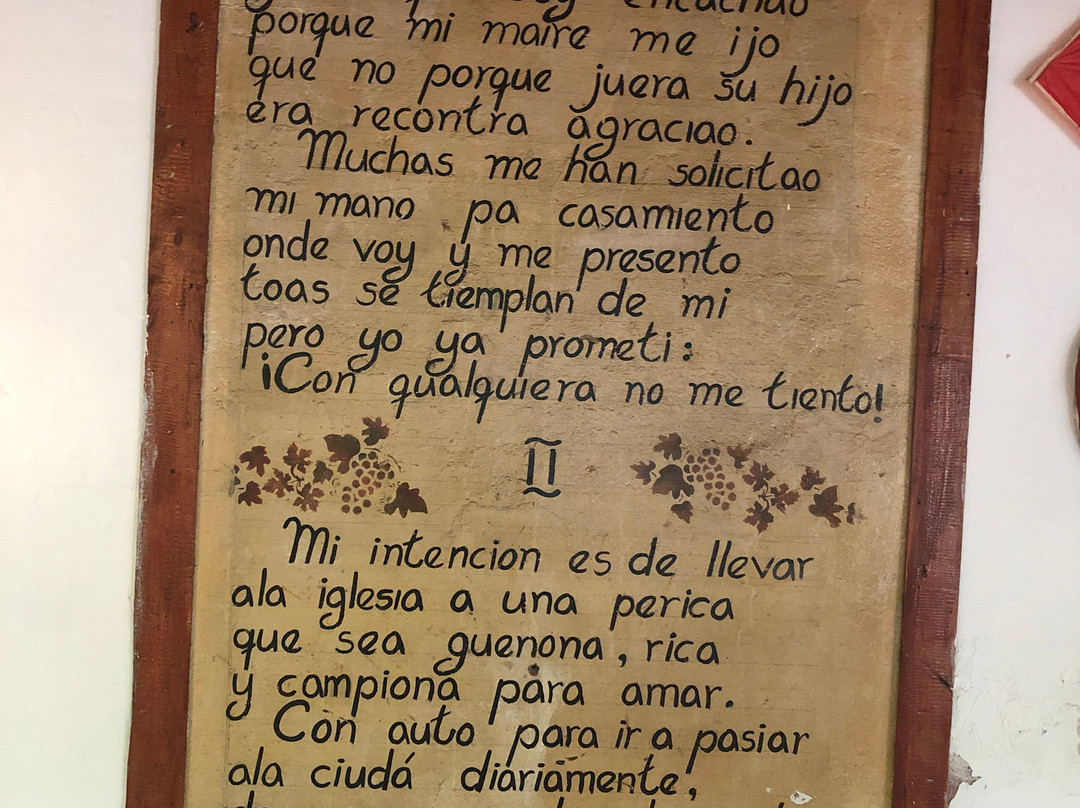 porque mi maire me ijo
que no porque juera su hijo
era recontra agraciao.
Muchas me han solicitao
mi mano pa casamiento
onde voy y me presento
toas se tiemplan de mi
pero yo ya prometi:
¡Con qualquiera no me tiento!
II
Mi intencion es de llevar
ala iglesia a una perica
que sea guenona, rica
y campiona para amar.
Con auto para ir a pasiar
ala ciudá diariamente,